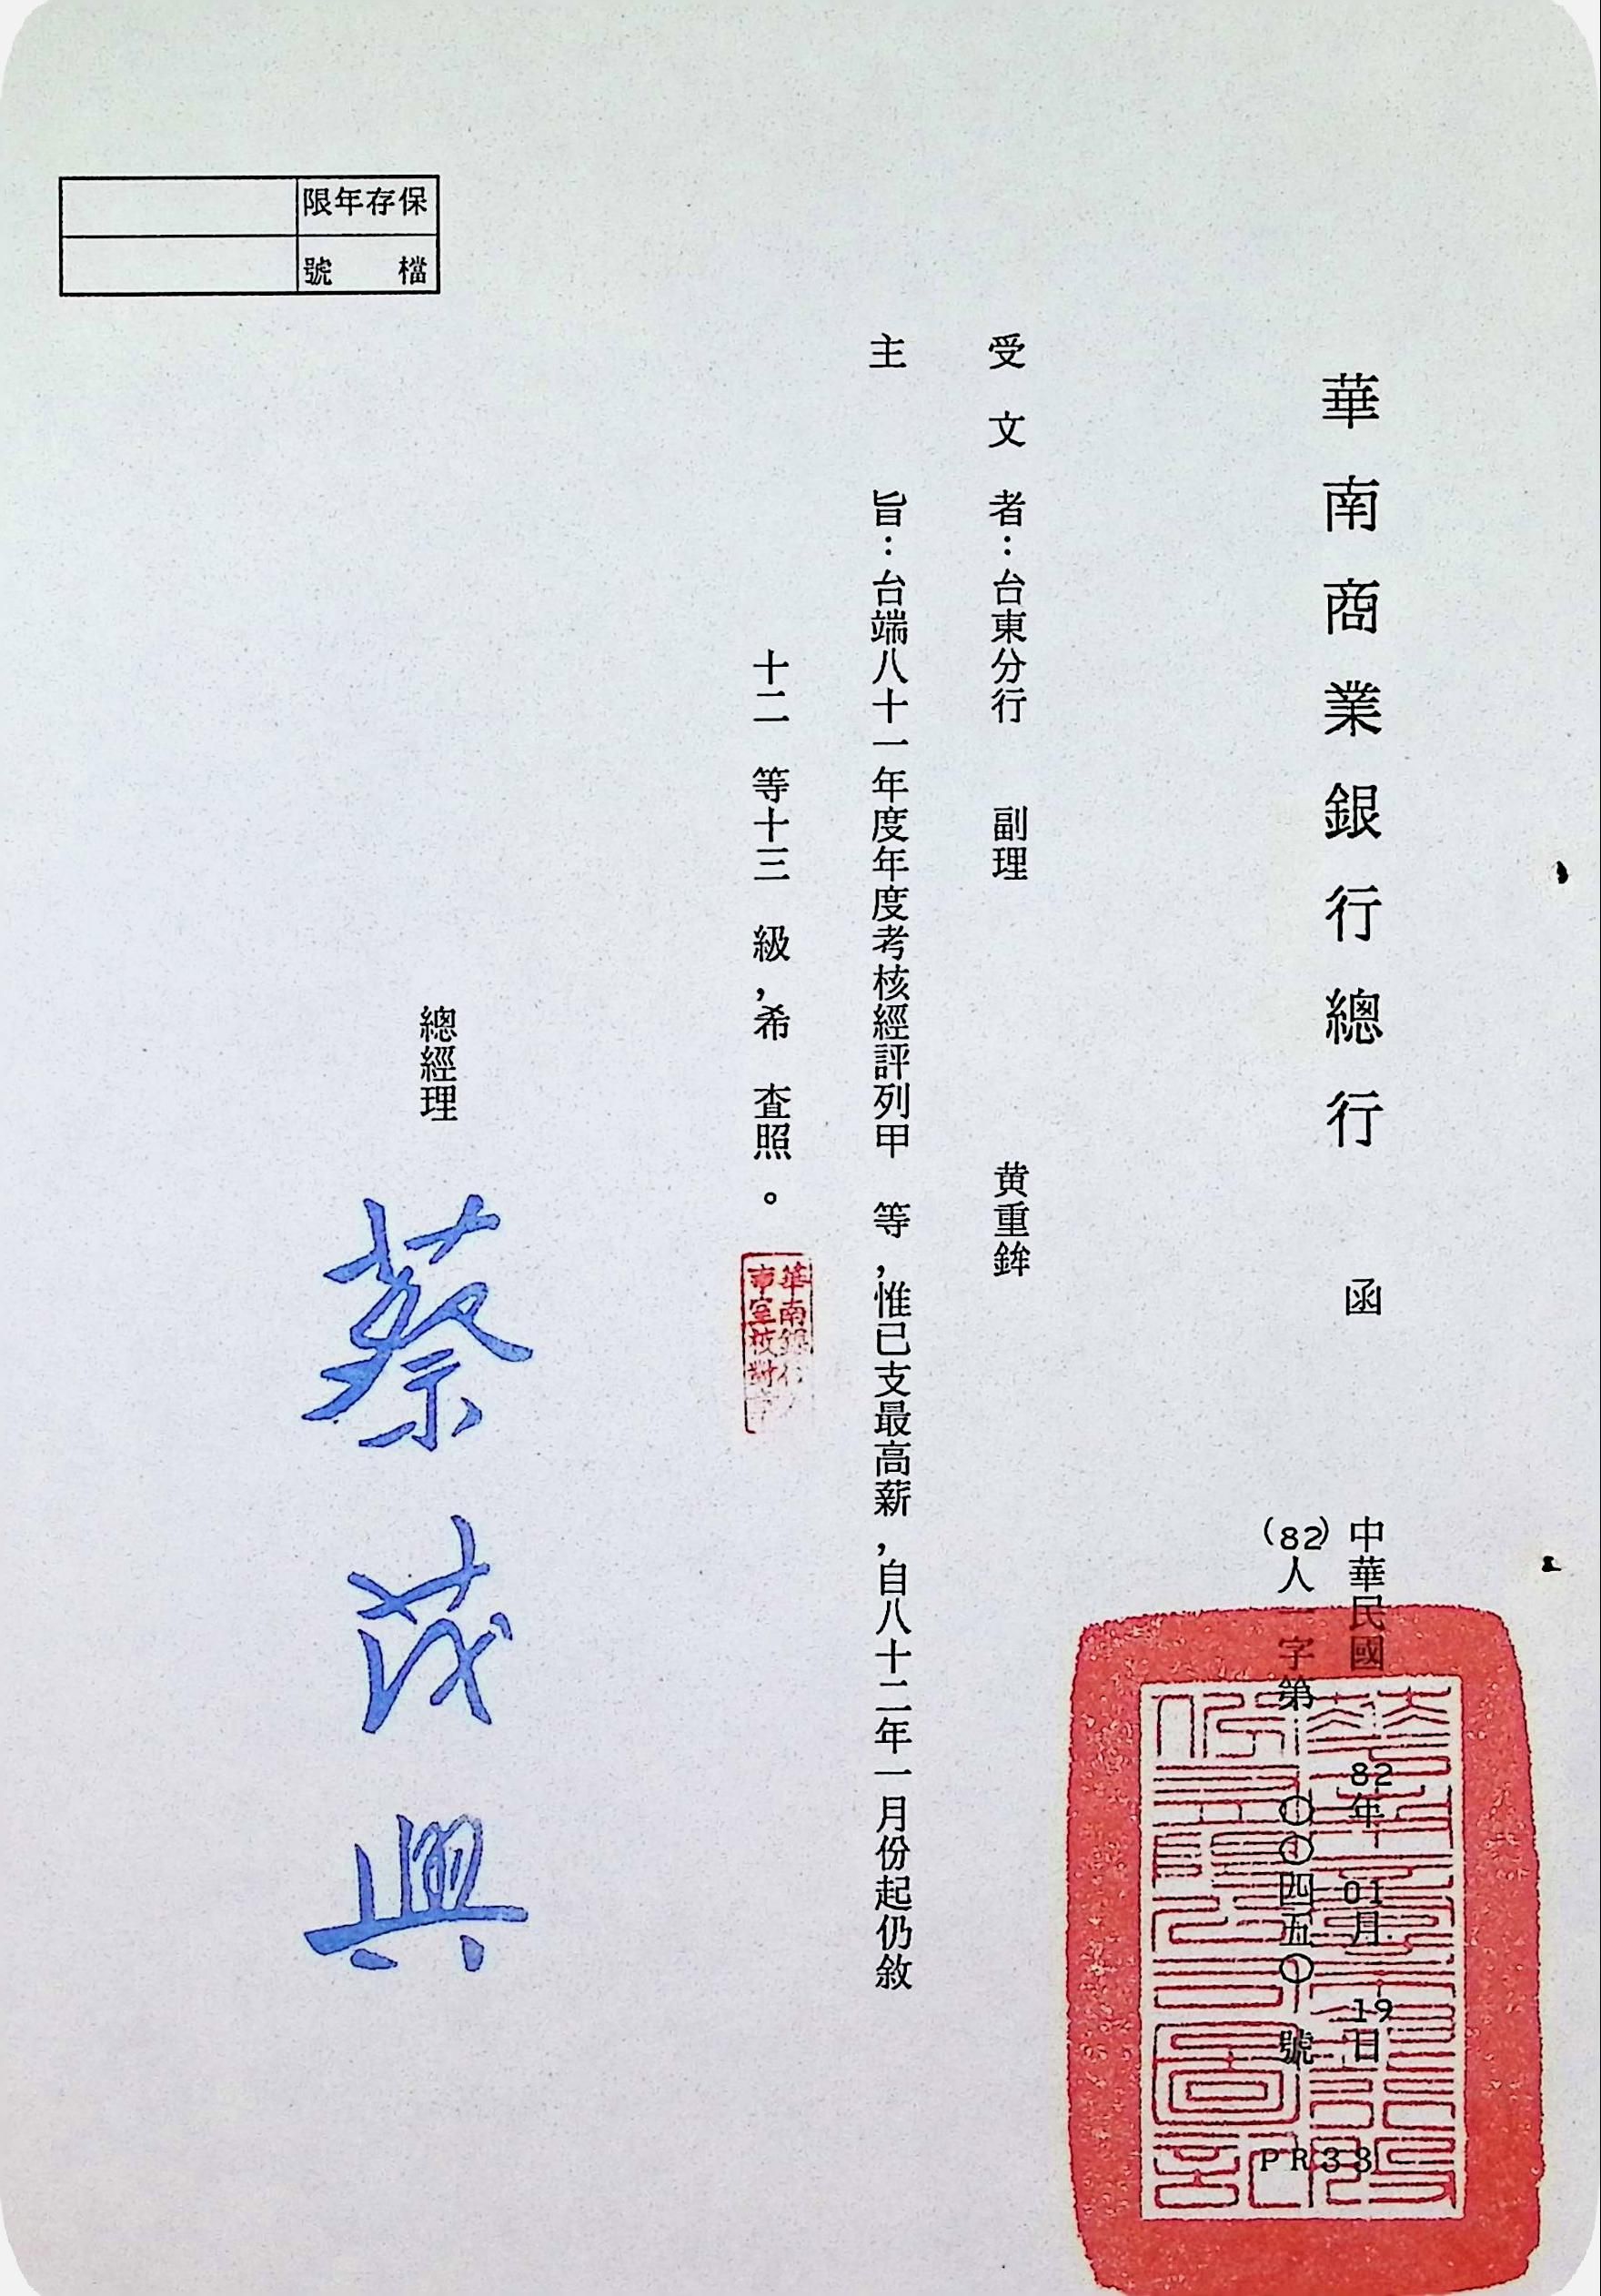 保存年限
檔號
華南商業銀行總行 函
中華民國 82年 01月 19日
(82)人一字第 〇〇四五〇 號
PR38
受文者：台東分行 副理 黄重鉾
主旨：台端八十一年度年度考核經評列甲 等，惟已支最高薪，自八十二年一月份起仍敘
十二 等十三 級，希 查照。
華南銀行
室校對
總經理 蔡茂興